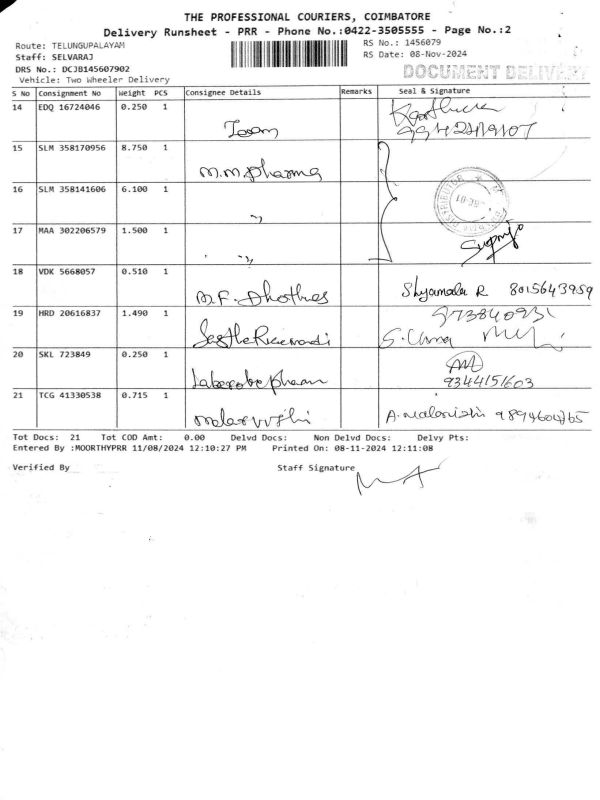 THE PROFESSIONAL COURIERS, COIMBATORE
Delivery Runsheet - PRR - Phone No.:0422-3505555 - Page No.:2
Route: TELUNGUPALAYAM RS No.: 1456079
Staff: SELVARAJ RS Date: 08-Nov-2024
DRS No.: DCJB145607902
Vehicle: Two Wheeler Delivery DOCUMENT DELIVERY
S No Consignment No Weight PCS Consignee Details Remarks Seal & Signature
14 EDQ 16724046 0.250 1
15 SLM 358170956 8.750 1 M.M Pharma
16 SLM 358141606 6.100 1 "
17 MAA 302206579 1.500 1 "
18 VDK 5668057 0.510 1 Shyamala R 8015643959
19 HRD 20616837 1.490 1
20 SKL 723849 0.250 1 9344151603
21 TCG 41330538 0.715 1
Tot Docs: 21 Tot COD Amt: 0.00 Delvd Docs: Non Delvd Docs: Delvy Pts:
Entered By :MOORTHYPRR 11/08/2024 12:10:27 PM Printed On: 08-11-2024 12:11:08
Verified By Staff Signature